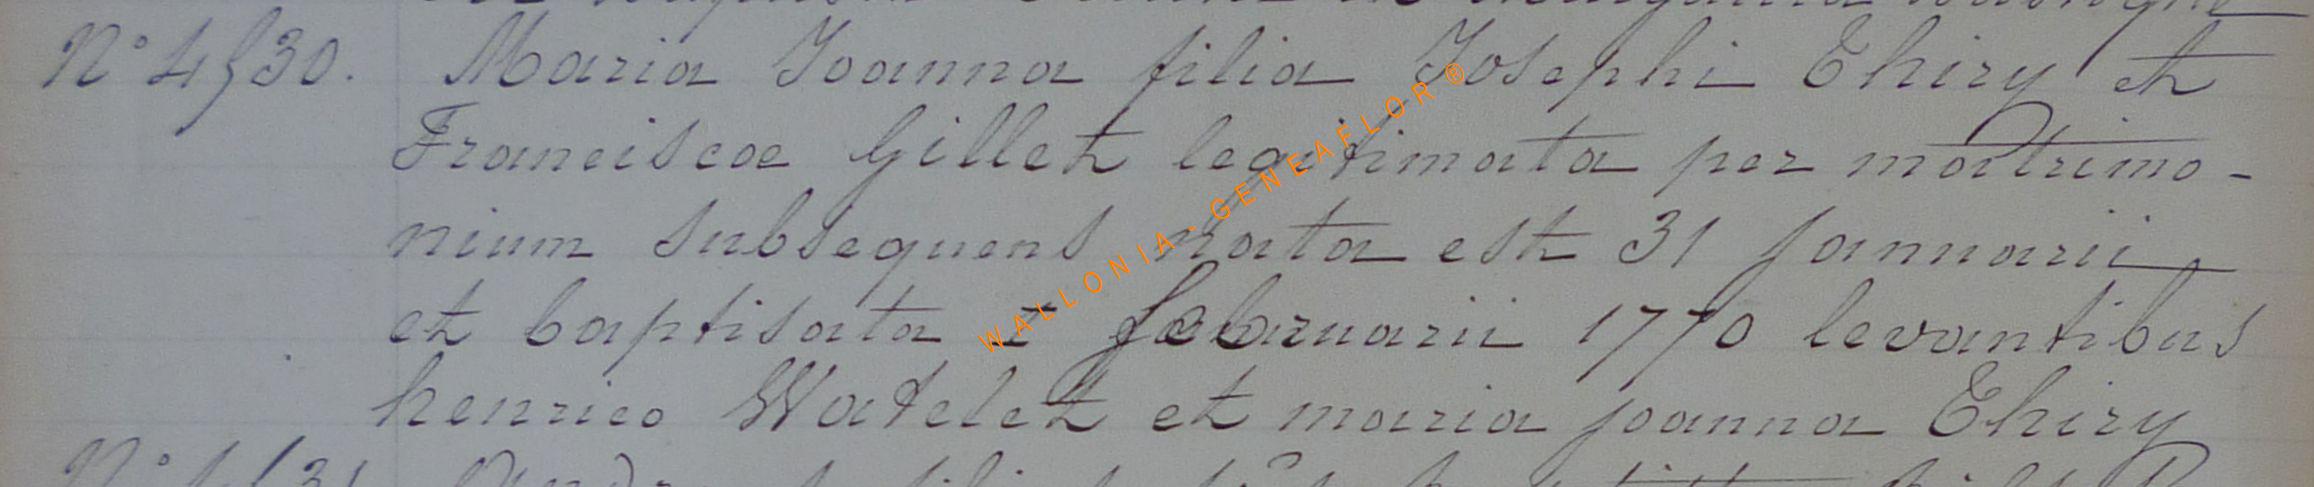 N° 4530. Maria Joanna filia Josephi Thiry et
Franciscae Gillet legitimata per matrimo-
nium subsequens nata est 31 januarii
et baptisata februarii 1770 levantibus
henrico Watelet et maria joanna Thiry
WALLONIA-GENEAFLOR®